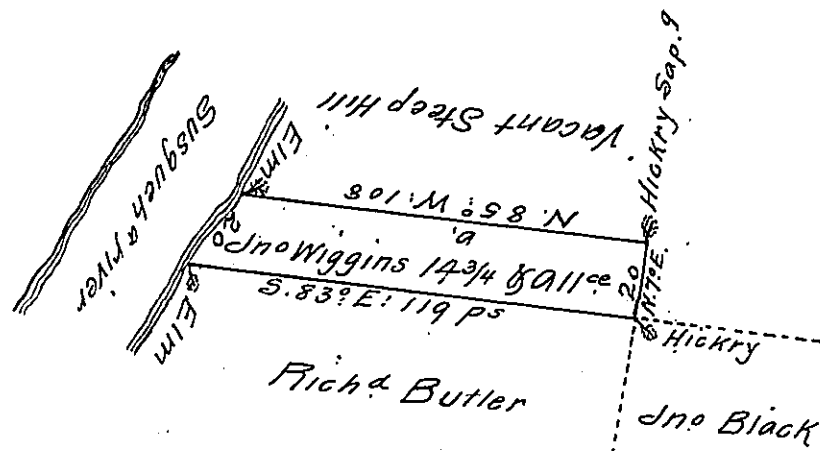 Susqueh a river
Elm
Vacant Steep Hill
Hickry Sap. g
N. 85° W: 108
a.
20
Jno Wiggins 14 3/4 & All ce
20
N. 7° E.
S. 83° E: 119 ps
Elm
Hickry
Rich d Butler
Jno Black